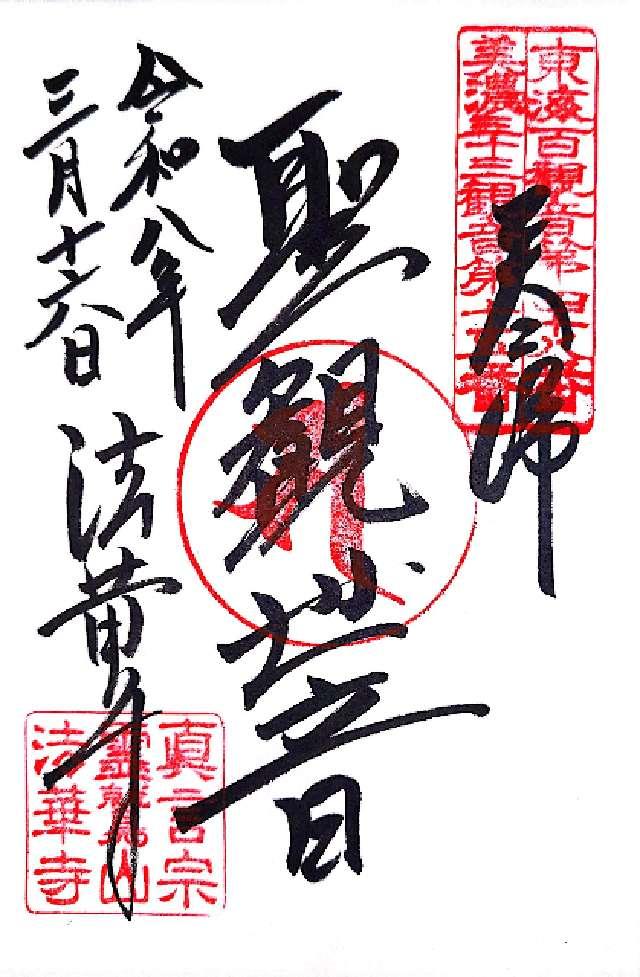 東海百観音第四十八番
美濃三十三観音第十五番
聖観世音
令和八年
三月十六日
法華寺
真言宗
靈鷲山
法華寺